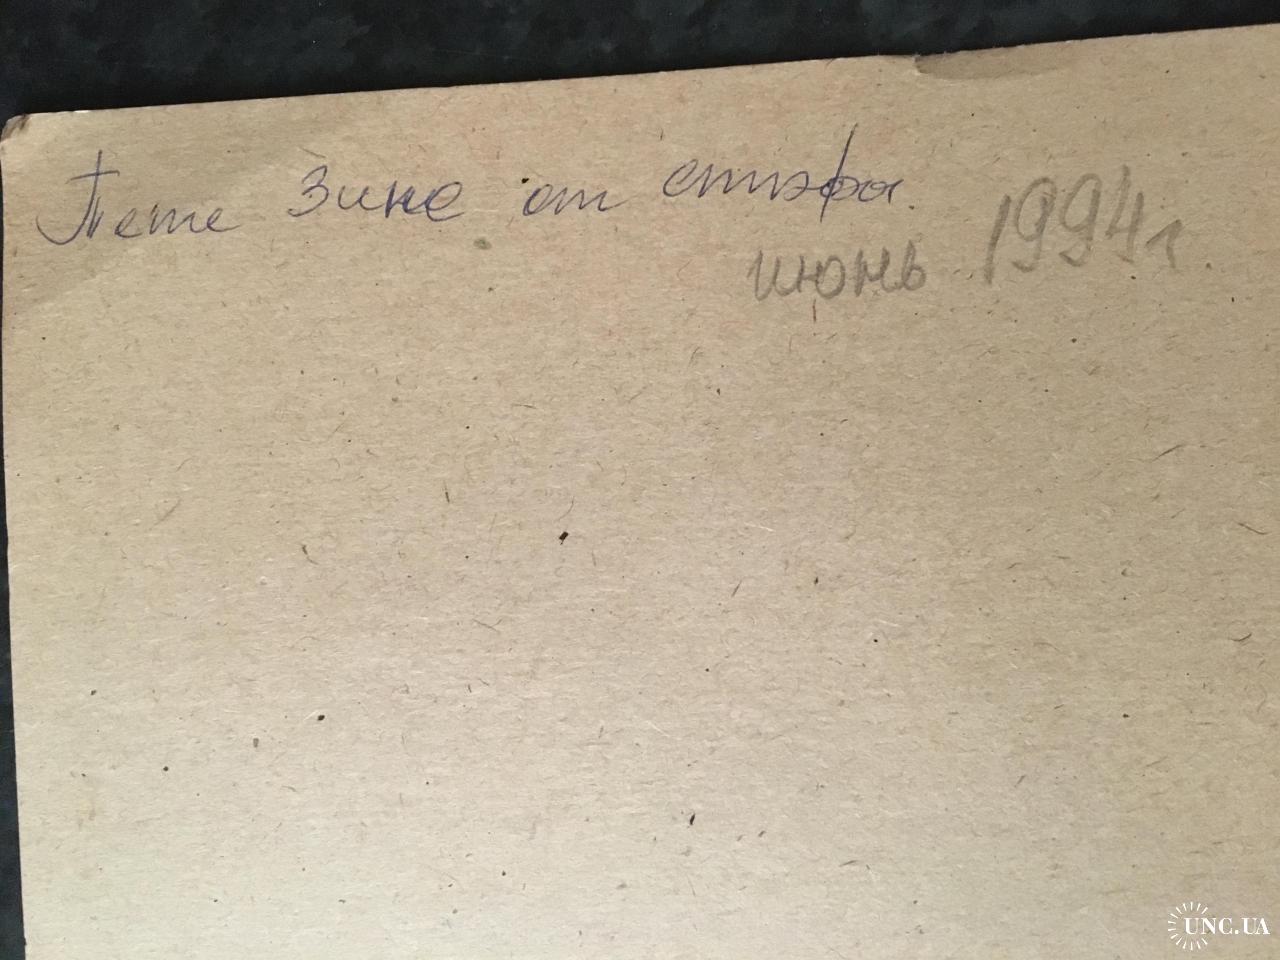 Тете Зине от Стэфы.
июнь 1994 г.
UNC.UA